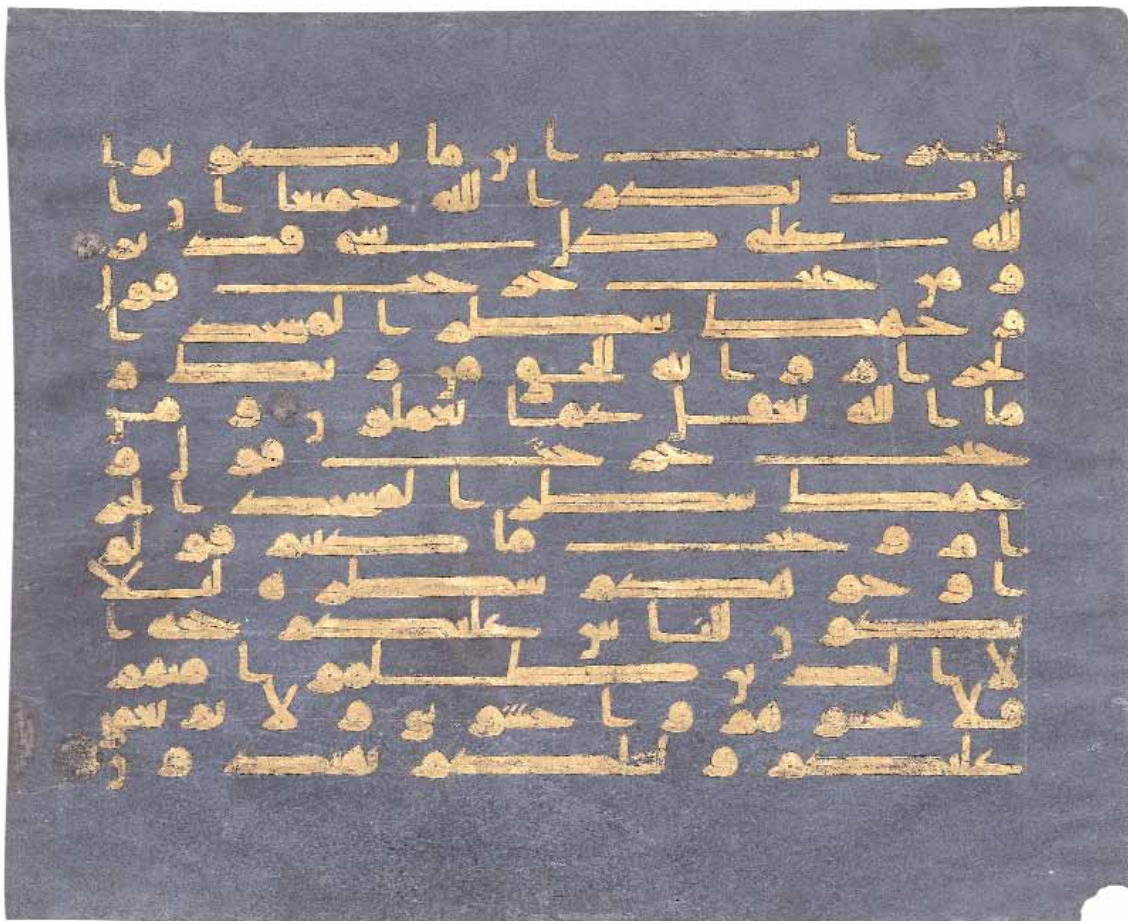 لخيرت اين ما تكونوا
يات بكم الله جميعا ان ا
لله على كل شى قدير
و من حيث خرجت فول
وجهك شطر المسجد ا
لحرام وانه للحق من ربك و
ما الله بغفل عما تعملون ومن
حيث خرجت فول و
جهك شطر المسجد الحر
ام وحيث ما كنتم فولو
ا وجوهكم شطره لئلا
يكون للناس عليكم حجة ا
لا الذين ظلموا منهم
فلا تخشوهم واخشونى ولاتم نعمتى
عليكم ولعلكم تهتدون